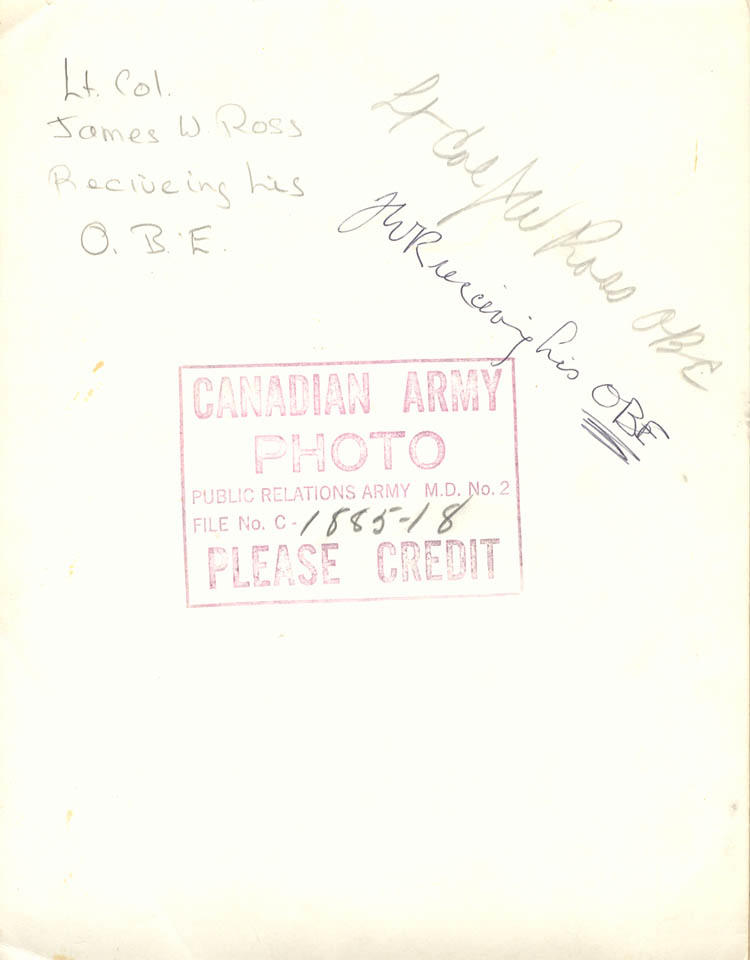 Lt. Col.
James W. Ross
Reciveing his
O. B. E.
Lt Col JW Ross OBE
JWR receiving his OBE
CANADIAN ARMY
PHOTO
PUBLIC RELATIONS ARMY M.D. No. 2
FILE No. C - 1885-18
PLEASE CREDIT